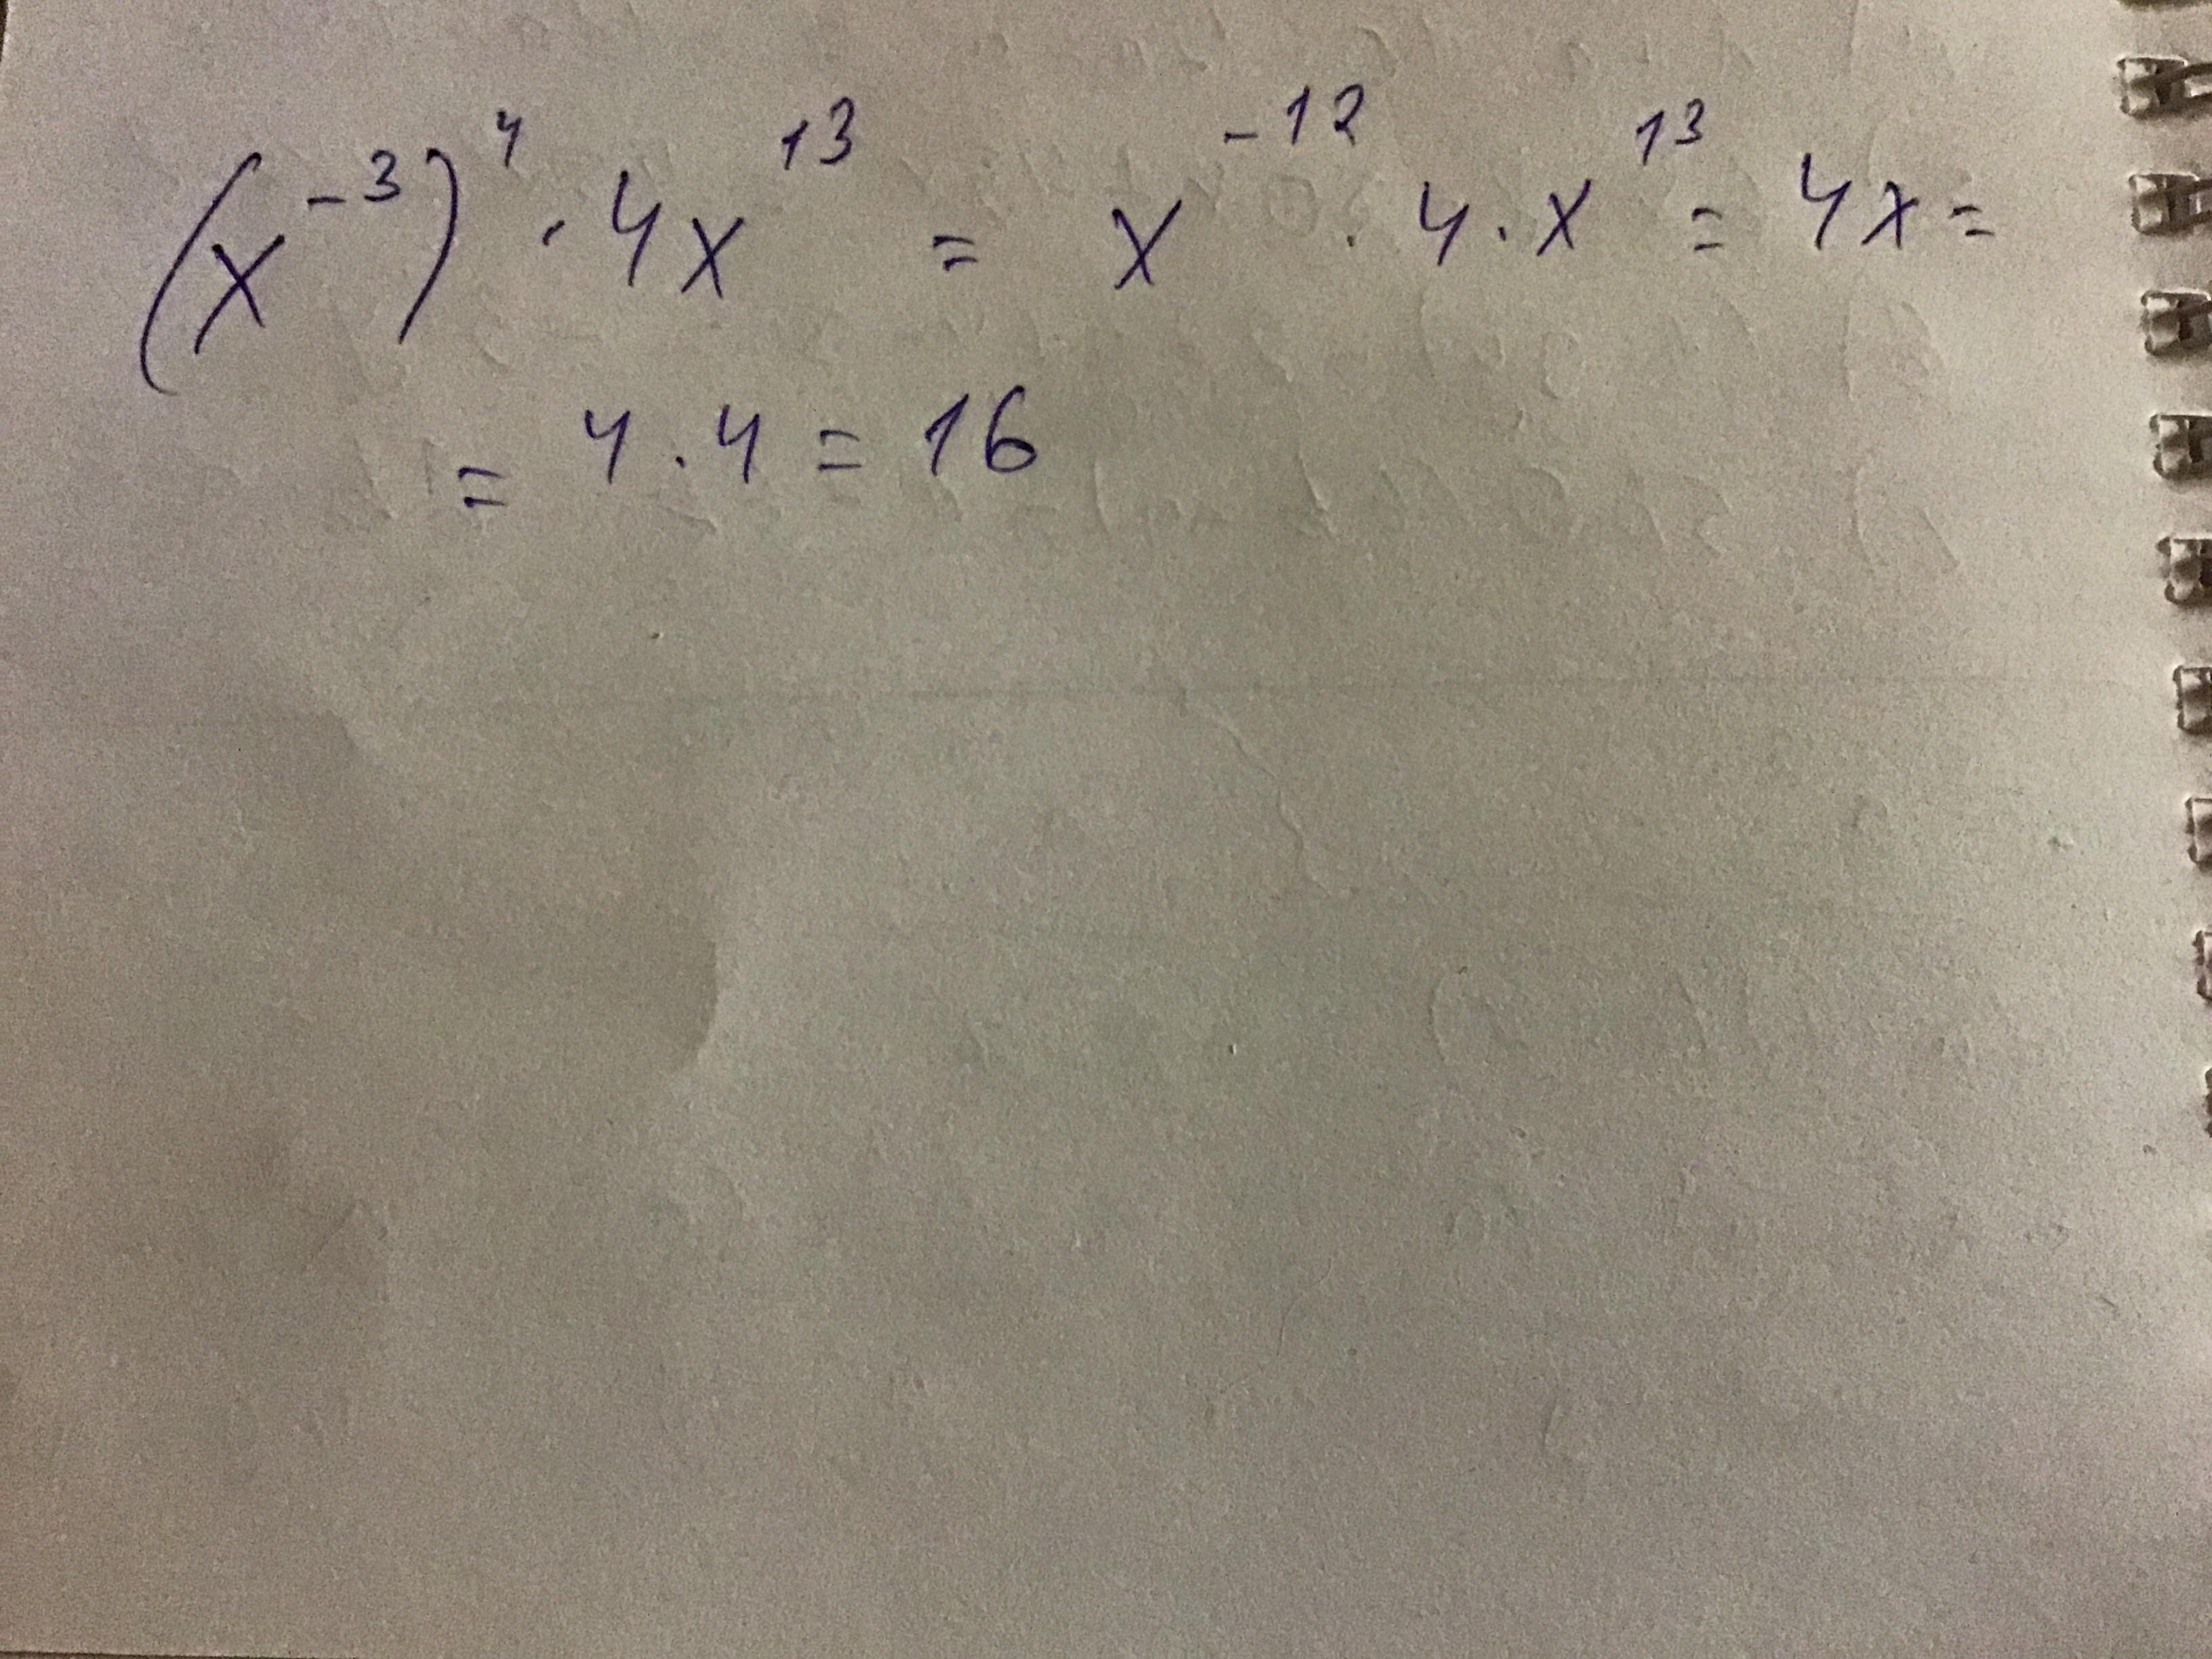 (x⁻³)⁴ · 4x¹³ = x⁻¹² · 4 · x¹³ = 4x =
= 4 · 4 = 16